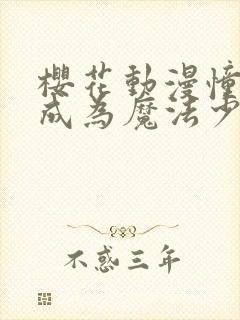 櫻花動漫憧
成為魔法少
不惑三年